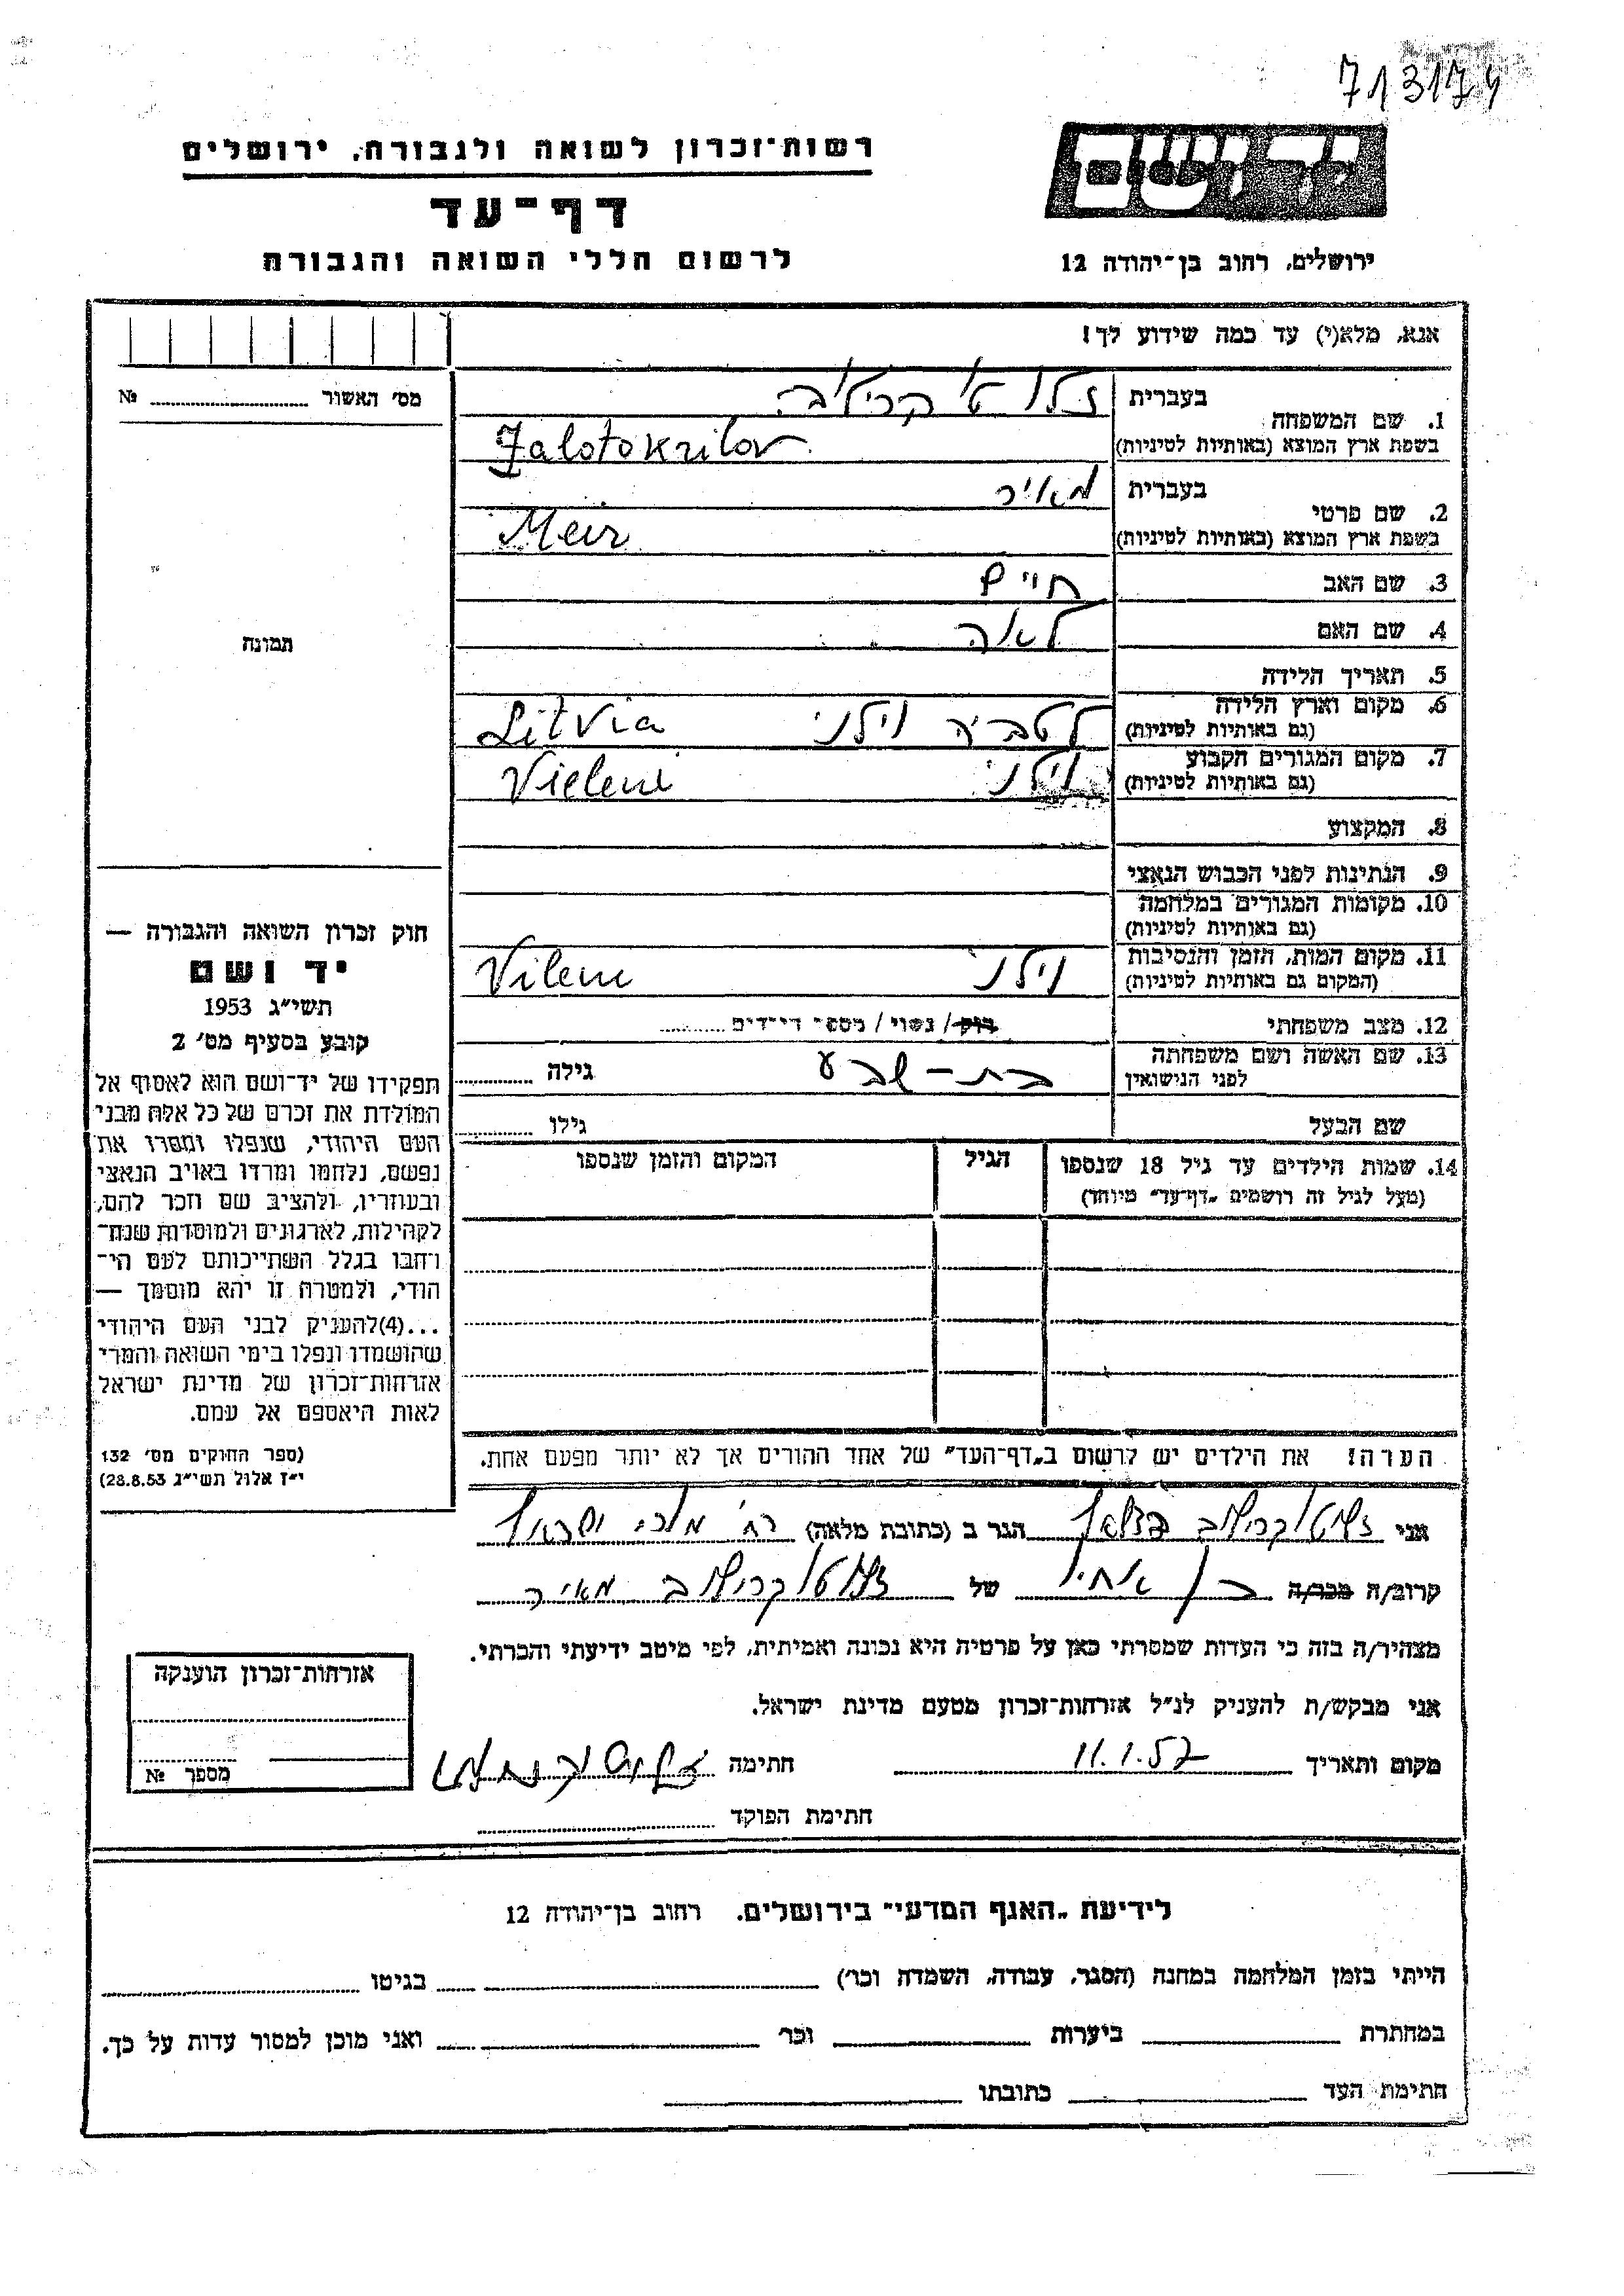 713174
רשות־זכרון לשואה ולגבורה, ירושלים
יד ושם
דף־עד
לרשום חללי השואה והגבורה
ירושלים, רחוב בן־יהודה 12
אנא, מלא(י) עד כמה שידוע לך!
מס׳ האשור № 
1. שם המשפחה בעברית זלוטוקרילוב
בשפת ארץ המוצא (באותיות לטיניות) Zalotokrilov
2. שם פרטי בעברית מאיר
בשפת ארץ המוצא (באותיות לטיניות) Meir
3. שם האב חיים
4. שם האם לאה
תמונה
5. תאריך הלידה
6. מקום וארץ הלידה (גם באותיות לטיניות) לטביה וילני Litvia
7. מקום המגורים הקבוע (גם באותיות לטיניות) וילני Vieleni
8. המקצוע
9. הנתינות לפני הכבוש הנאצי
10. מקומות המגורים במלחמה (גם באותיות לטיניות)
11. מקום המות, הזמן והנסיבות (המקום גם באותיות לטיניות) וילני Vileni
12. מצב משפחתי רוק/נשוי/מספר דיידים
13. שם האשה ושם משפחתה לפני הנישואין בת-שבע גילה
שם הבעל גילו
14. שמות הילדים עד גיל 18 שנספו הגיל המקום והזמן שנספו
(מעל לגיל זה רושמים „דף־עד״ מיוחד)
הערה! את הילדים יש לרשום ב„דף־העד״ של אחד ההורים אך לא יותר מפעם אחת.
חוק זכרון השואה והגבורה —
יד ושם
תשי״ג 1953
קובע בסעיף מס׳ 2
תפקידו של יד־ושם הוא לאסוף אל
המולדת את זכרם של כל אלה מבני
העם היהודי, שנפלו ומסרו את
נפשם, נלחמו ומרדו באויב הנאצי
ובעוזריו, ולהציב שם וזכר להם,
לקהילות, לארגונים ולמוסדות שנח־
רחבו בגלל השתייכותם לעם הי־
הודי, ולמטרה זו יהא מוסמך —
...(4)להעניק לבני העם היהודי
שהושמדו ונפלו בימי השואה והמרי
אזרחות־זכרון של מדינת ישראל
לאות היאספם אל עמם.
(ספר החוקים מס׳ 132
י״ז אלול תשי״ג 28.8.53)
אני זלוטוקרילוב בצלאל הגר ב (כתובת מלאה) רח׳ מלכי ישראל
קרוב/ה מכר/ה בן אחיו של זלוטוקרילוב מאיר
מצהיר/ה בזה כי העדות שמסרתי כאן על פרטיה היא נכונה ואמיתית, לפי מיטב ידיעתי והכרתי.
אני מבקש/ת להעניק לנ״ל אזרחות־זכרון מטעם מדינת ישראל.
מקום ותאריך 11.1.57 חתימה
חתימת הפוקד
אזרחות־זכרון הוענקה
מספר №
לידיעת „האגף המדעי״ בירושלים, רחוב בן־יהודה 12
הייתי בזמן המלחמה במחנה (הסגר, עבודה, השמדה וכר׳) בגיטו
במחתרת ביערות וכר׳ ואני מוכן למסור עדות על כך.
חתימת העד כתובתו